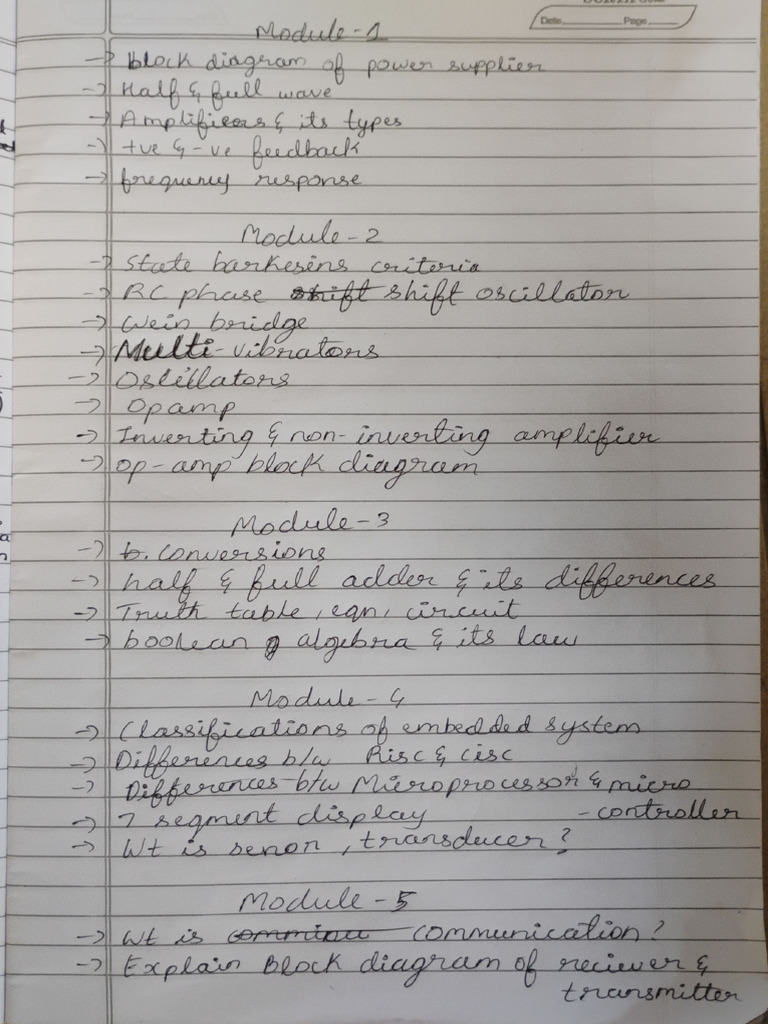 Date Page
Module-1
→ block diagram of power supplier
→ Half & full wave
→ Amplifiers & its types
→ +ve & -ve feedback
→ frequency response
Module-2
→ State barkesens criteria
→ RC phase shift shift oscillator
→ Wein bridge
→ Multi-vibrators
→ Oscillators
→ Op amp
→ Inverting & non-inverting amplifier
→ op-amp block diagram
Module-3
→ b. conversions
→ half & full adder & its differences
→ Truth table, eqn, circuit
→ boolean algebra & its law
Module-4
→ Classifications of embedded system
→ Differences b/w Risc & cisc
→ Differences b/w Microprocessor & micro
→ 7 segment display -controller
→ Wt is senon, transducer?
Module-5
→ Wt is communication?
→ Explain Block diagram of reciever &
transmitter